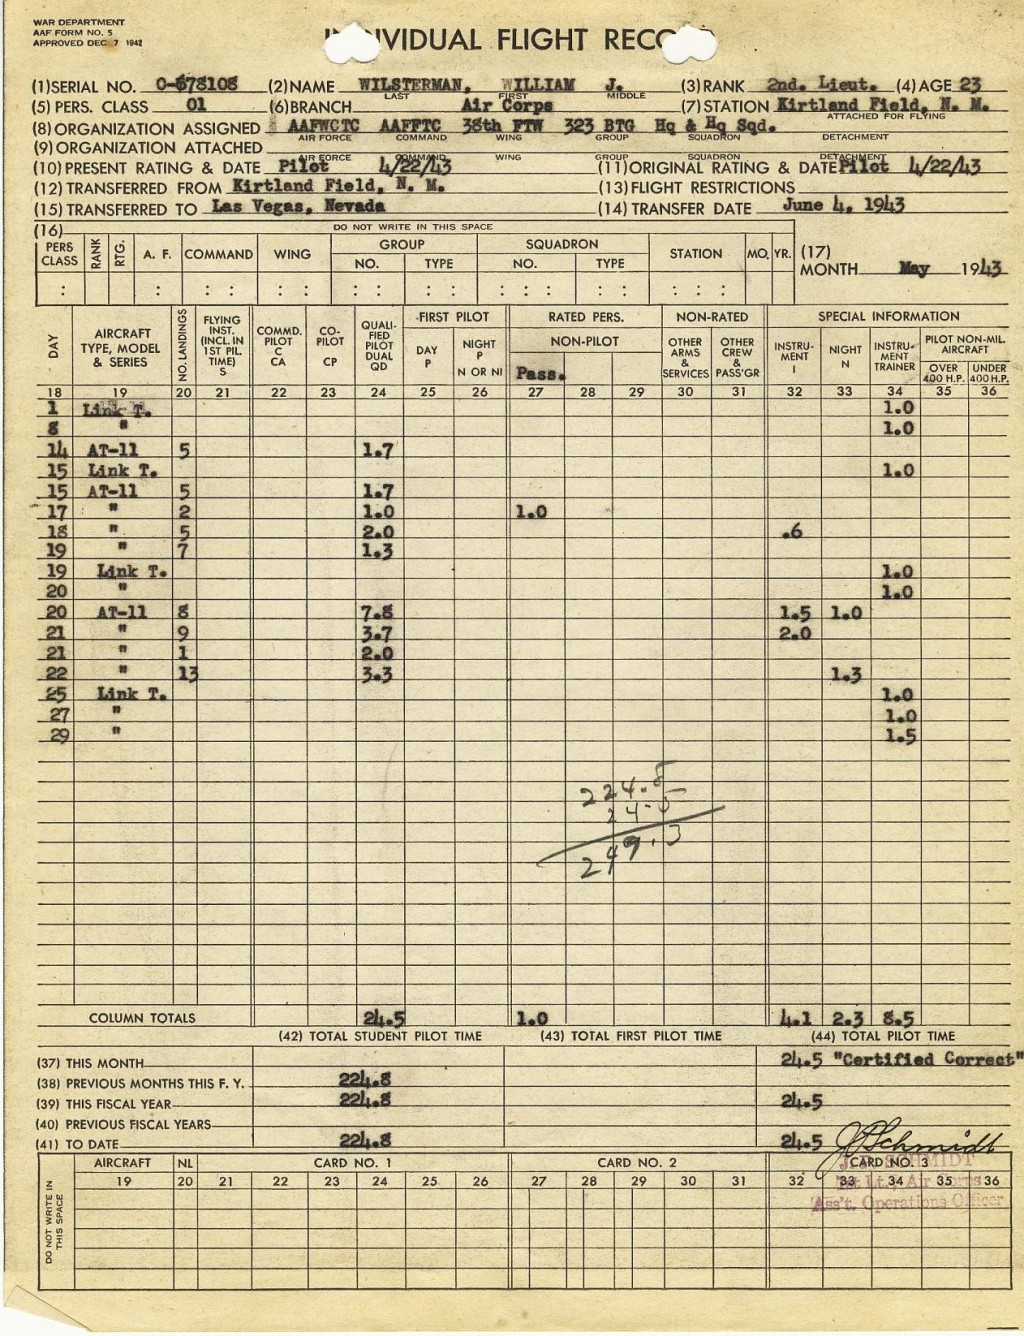 WAR DEPARTMENT
AAF FORM NO. 5
APPROVED DEC 7 1942
INDIVIDUAL FLIGHT RECORD
(1) SERIAL NO. O-678108 (2) NAME WILSTERMAN, WILLIAM J. (3) RANK 2nd. Lieut. (4) AGE 23
LAST FIRST MIDDLE
(5) PERS. CLASS 01 (6) BRANCH Air Corps (7) STATION Kirtland Field, N. M.
ATTACHED FOR FLYING
(8) ORGANIZATION ASSIGNED AAFWCTC AAFFTC 38th FTW 323 BTG Hq & Hq Sqd.
AIR FORCE COMMAND WING GROUP SQUADRON DETACHMENT
(9) ORGANIZATION ATTACHED
AIR FORCE COMMAND WING GROUP SQUADRON DETACHMENT
(10) PRESENT RATING & DATE Pilot 4/22/43 (11) ORIGINAL RATING & DATE Pilot 4/22/43
(12) TRANSFERRED FROM Kirtland Field, N. M. (13) FLIGHT RESTRICTIONS
(15) TRANSFERRED TO Las Vegas, Nevada (14) TRANSFER DATE June 4, 1943
(16) DO NOT WRITE IN THIS SPACE
PERS CLASS RANK RTG. A. F. COMMAND WING GROUP NO. TYPE SQUADRON NO. TYPE STATION MO. YR. (17) MONTH May 1943
DAY AIRCRAFT TYPE, MODEL & SERIES NO. LANDINGS FLYING INST. (INCL. IN 1ST PIL. TIME) S COMMD. PILOT C CA CO-PILOT CP QUALI-FIED PILOT DUAL QD FIRST PILOT DAY P NIGHT P N OR NI RATED PERS. NON-PILOT Pass. NON-RATED OTHER ARMS & SERVICES OTHER CREW & PASS'GR SPECIAL INFORMATION INSTRU-MENT I NIGHT N INSTRU-MENT TRAINER PILOT NON-MIL. AIRCRAFT OVER 400 H.P. UNDER 400 H.P.
18 19 20 21 22 23 24 25 26 27 28 29 30 31 32 33 34 35 36
1 Link T. 1.0
8 " 1.0
14 AT-11 5 1.7
15 Link T. 1.0
15 AT-11 5 1.7
17 " 2 1.0 1.0
18 " 5 2.0 .6
19 " 7 1.3
19 Link T. 1.0
20 " 1.0
20 AT-11 8 7.8 1.5 1.0
21 " 9 3.7 2.0
21 " 1 2.0
22 " 13 3.3 1.3
25 Link T. 1.0
27 " 1.0
29 " 1.5
224.8
24.5
249.3
COLUMN TOTALS 24.5 1.0 4.1 2.3 8.5
(42) TOTAL STUDENT PILOT TIME (43) TOTAL FIRST PILOT TIME (44) TOTAL PILOT TIME
(37) THIS MONTH 24.5 "Certified Correct"
(38) PREVIOUS MONTHS THIS F. Y. 224.8
(39) THIS FISCAL YEAR 224.8 24.5
(40) PREVIOUS FISCAL YEARS
(41) TO DATE 224.8 24.5 J P Schmidt
DO NOT WRITE IN THIS SPACE
AIRCRAFT NL CARD NO. 1 CARD NO. 2 CARD NO. 3
19 20 21 22 23 24 25 26 27 28 29 30 31 32 33 34 35 36
J. P. SCHMIDT
1st Lt., Air Corps
Ass't. Operations Officer